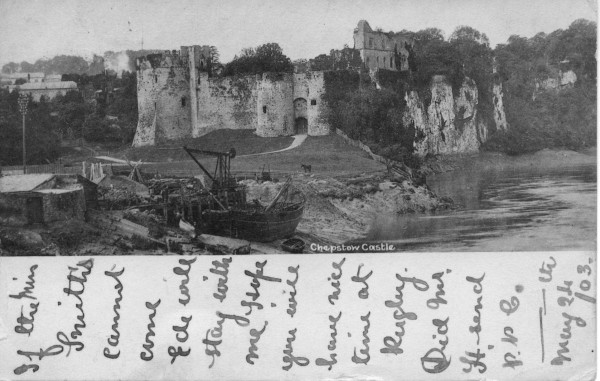 Chepstow Castle
If the Mis
Smith's
cannot
come
Ede will
stay with
me Hope
you will
have nice
time at
Rugby.
Did Mr.
H. send
P.P.C.
May 24th
/03.